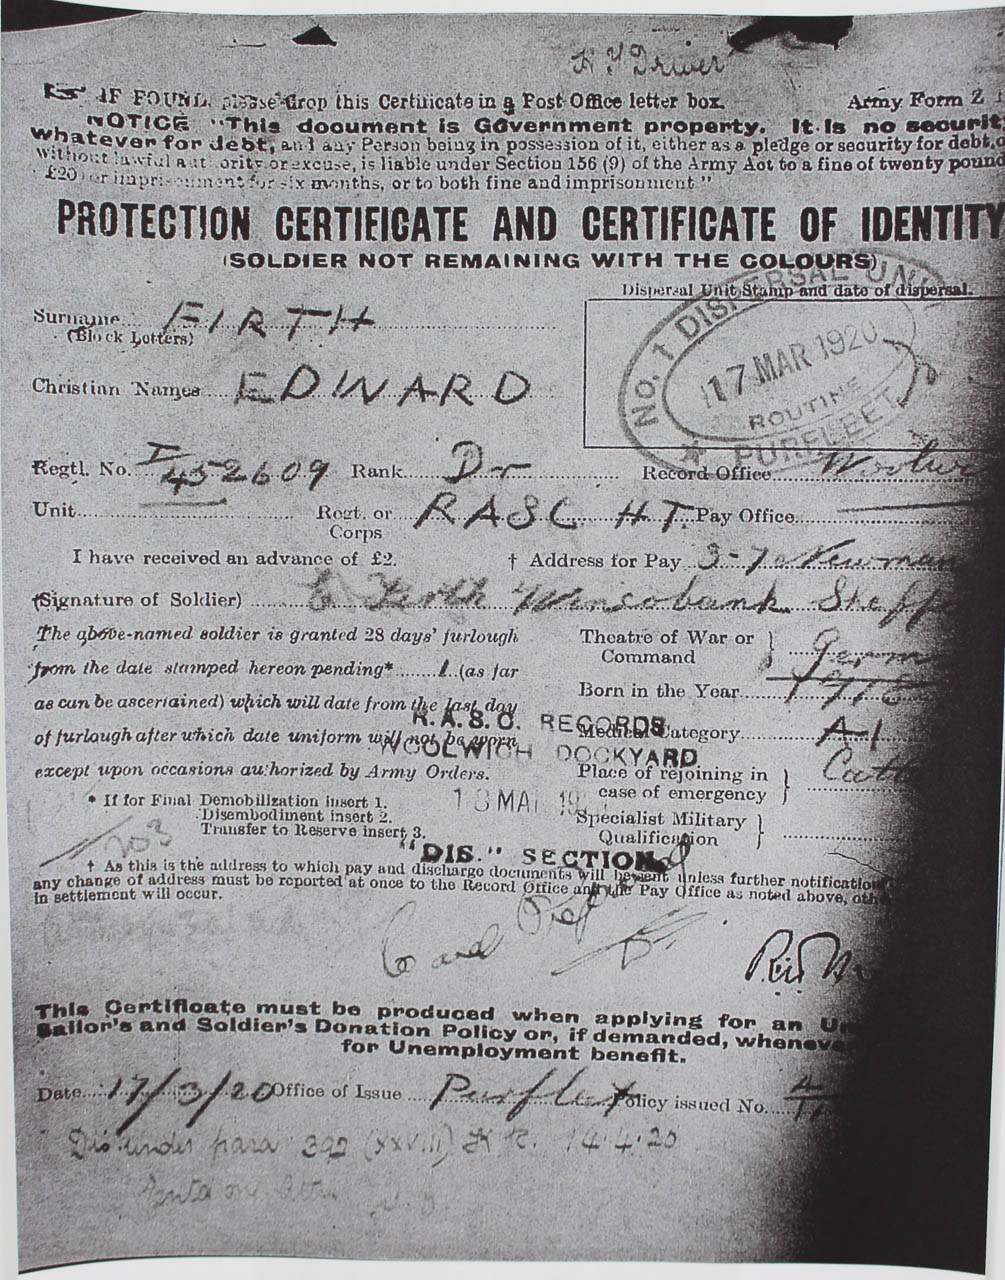 H.T. Driver
IF FOUND, please drop this Certificate in a Post Office letter box. Army Form Z
NOTICE "This document is Government property. It is no securit
whatever for debt, and any Person being in possession of it, either as a pledge or security for debt, o
without lawful authority or excuse, is liable under Section 156 (9) of the Army Act to a fine of twenty pound
£20) or imprisonment for six months, or to both fine and imprisonment"
PROTECTION CERTIFICATE AND CERTIFICATE OF IDENTITY
(SOLDIER NOT REMAINING WITH THE COLOURS)
Dispersal Unit Stamp and date of dispersal.
NO. 1 DISPERSAL UNIT
17 MAR 1920
ROUTINE
PURFLEET
Surname FIRTH
(Block Letters)
Christian Names EDWARD
Regtl. No. T/452609 Rank Dr Record Office Woolwi
Unit Regt. or Corps RASC H.T. Pay Office
I have received an advance of £2. † Address for Pay Newman
(Signature of Soldier) E Firth Wincobank. Sheff
The above-named soldier is granted 28 days' furlough
from the date stamped hereon pending* 1 (as far
as can be ascertained) which will date from the last day
of furlough after which date uniform will not be worn
except upon occasions authorized by Army Orders.
Theatre of War or Command Germ
Born in the Year
Medical Category A-1
Place of rejoining in case of emergency Catt
Specialist Military Qualification
R.A.S.C. RECORDS
WOOLWICH DOCKYARD
18 MAR 19
"DIS." SECTION
* If for Final Demobilization insert 1.
Disembodiment insert 2.
Transfer to Reserve insert 3.
203
† As this is the address to which pay and discharge documents will be sent unless further notification
any change of address must be reported at once to the Record Office and the Pay Office as noted above, oth
in settlement will occur.
This Certificate must be produced when applying for an Un
Sailor's and Soldier's Donation Policy or, if demanded, wheneve
for Unemployment benefit.
Date 17/3/20 Office of Issue Purfleet Policy issued No.
Dis: under para 392 (XXVIII) K.R. 14.4.20